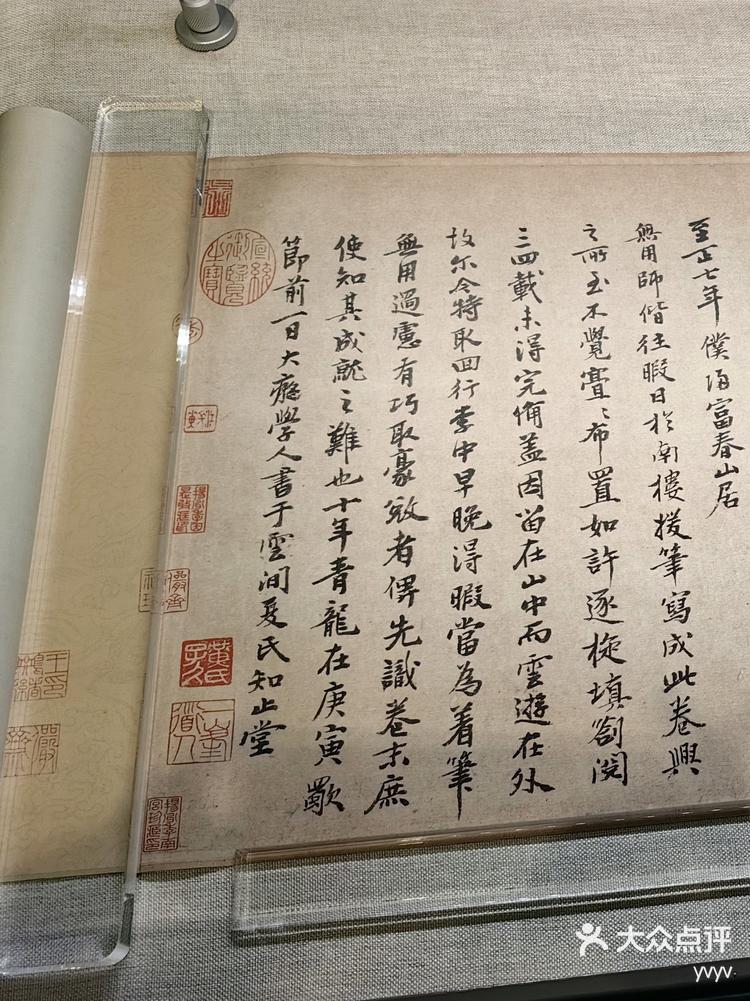 至正七年僕歸富春山居
無用師偕往暇日於南樓援筆寫成此卷興
之所至不覺亹〻布置如許逐旋填劄閱
三四載未得完備盖因留在山中而雲遊在外
故尔今特取回行李中早晚得暇當為着筆
無用過慮有巧取豪敚者俾先識卷末庶
使知其成就之難也十年青龍在庚寅歜
節前一日大癡學人書于雲間夏氏知止堂
宣統御覽之寶
黃氏子久
一峯道人
大众点评
yvyv